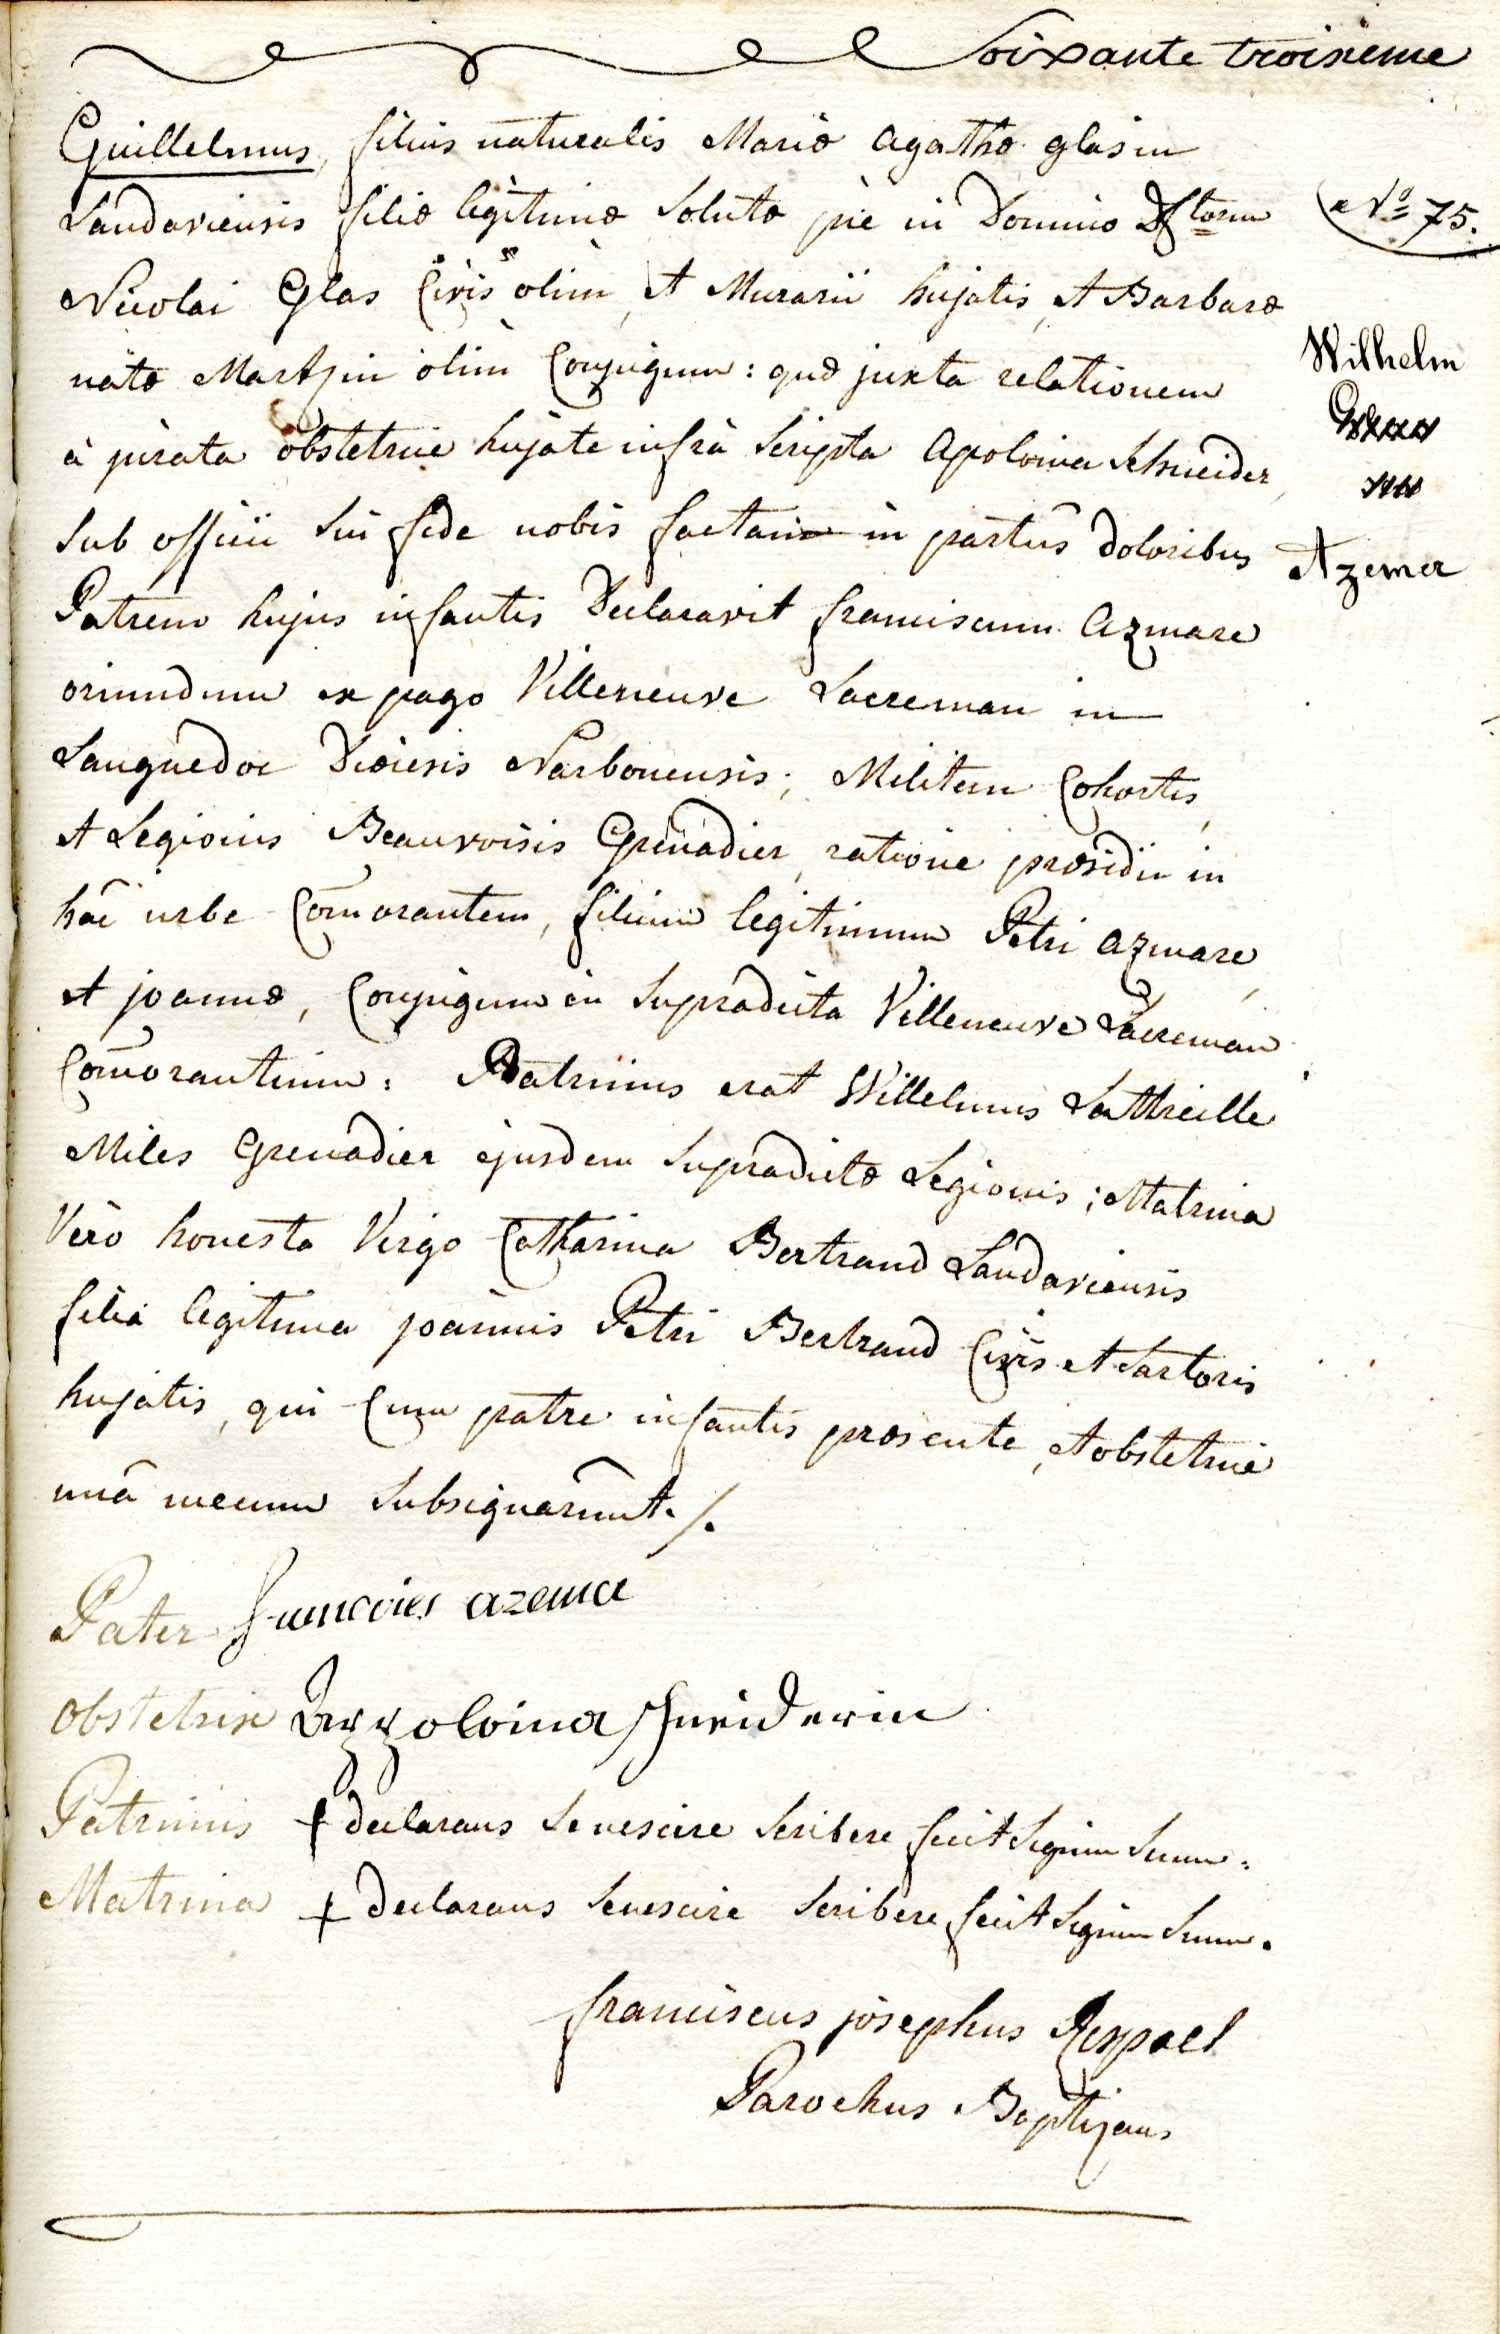 Soixante troisieme
Guillelmus, filius naturalis Mariæ Agathæ Glasin
Landaviensis filiæ legitimæ solutæ pie in Domino Dftorum
Nicolai Glas Civis olim, et Murarii hujatis, et Barbaræ
natæ Martzin olim Conjugum: quæ juxta relationem
à jurata obstetrice hujate infrà scripta Apolonia Schneider,
sub officii sui fide nobis factam in partûs doloribus
Patrem hujus infantis Declaravit franciscum Azmare
oriundum ex pago Villeneuve Lacreman in
Languedoc Diœcesis Narbonensis; Militem Cohortis,
et Legionis Beauvoisis Grenadier, ratione præsidii in
hâc urbe Com̄orantem, filium legitimum Petri Azmare,
et joannæ, Conjugum in supradicta Villeneuve Lacreman
Com̄orantium: Patrinus erat Willelmus Lathreille
Miles Grenadier ejusdem supradictæ Legionis; Matrina
Verò honesta Virgo Catharina Bertrand Landaviensis
filia legitima joannis Petri Bertrand Civis et Sartoris
hujatis, qui Cum patre infantis præsente, et obstetrice
unâ mecum subsignarunt. /.
No 75.
Wilhelm
Azemer
Pater francoies azema
Obstetrix Appolonia schneiderin
Patrinus + declarans se nescire scribere fecit signum suum.
Matrina + declarans se nescire scribere, fecit signum suum.
franciscus josephus Rippel
Parochus Baptizans